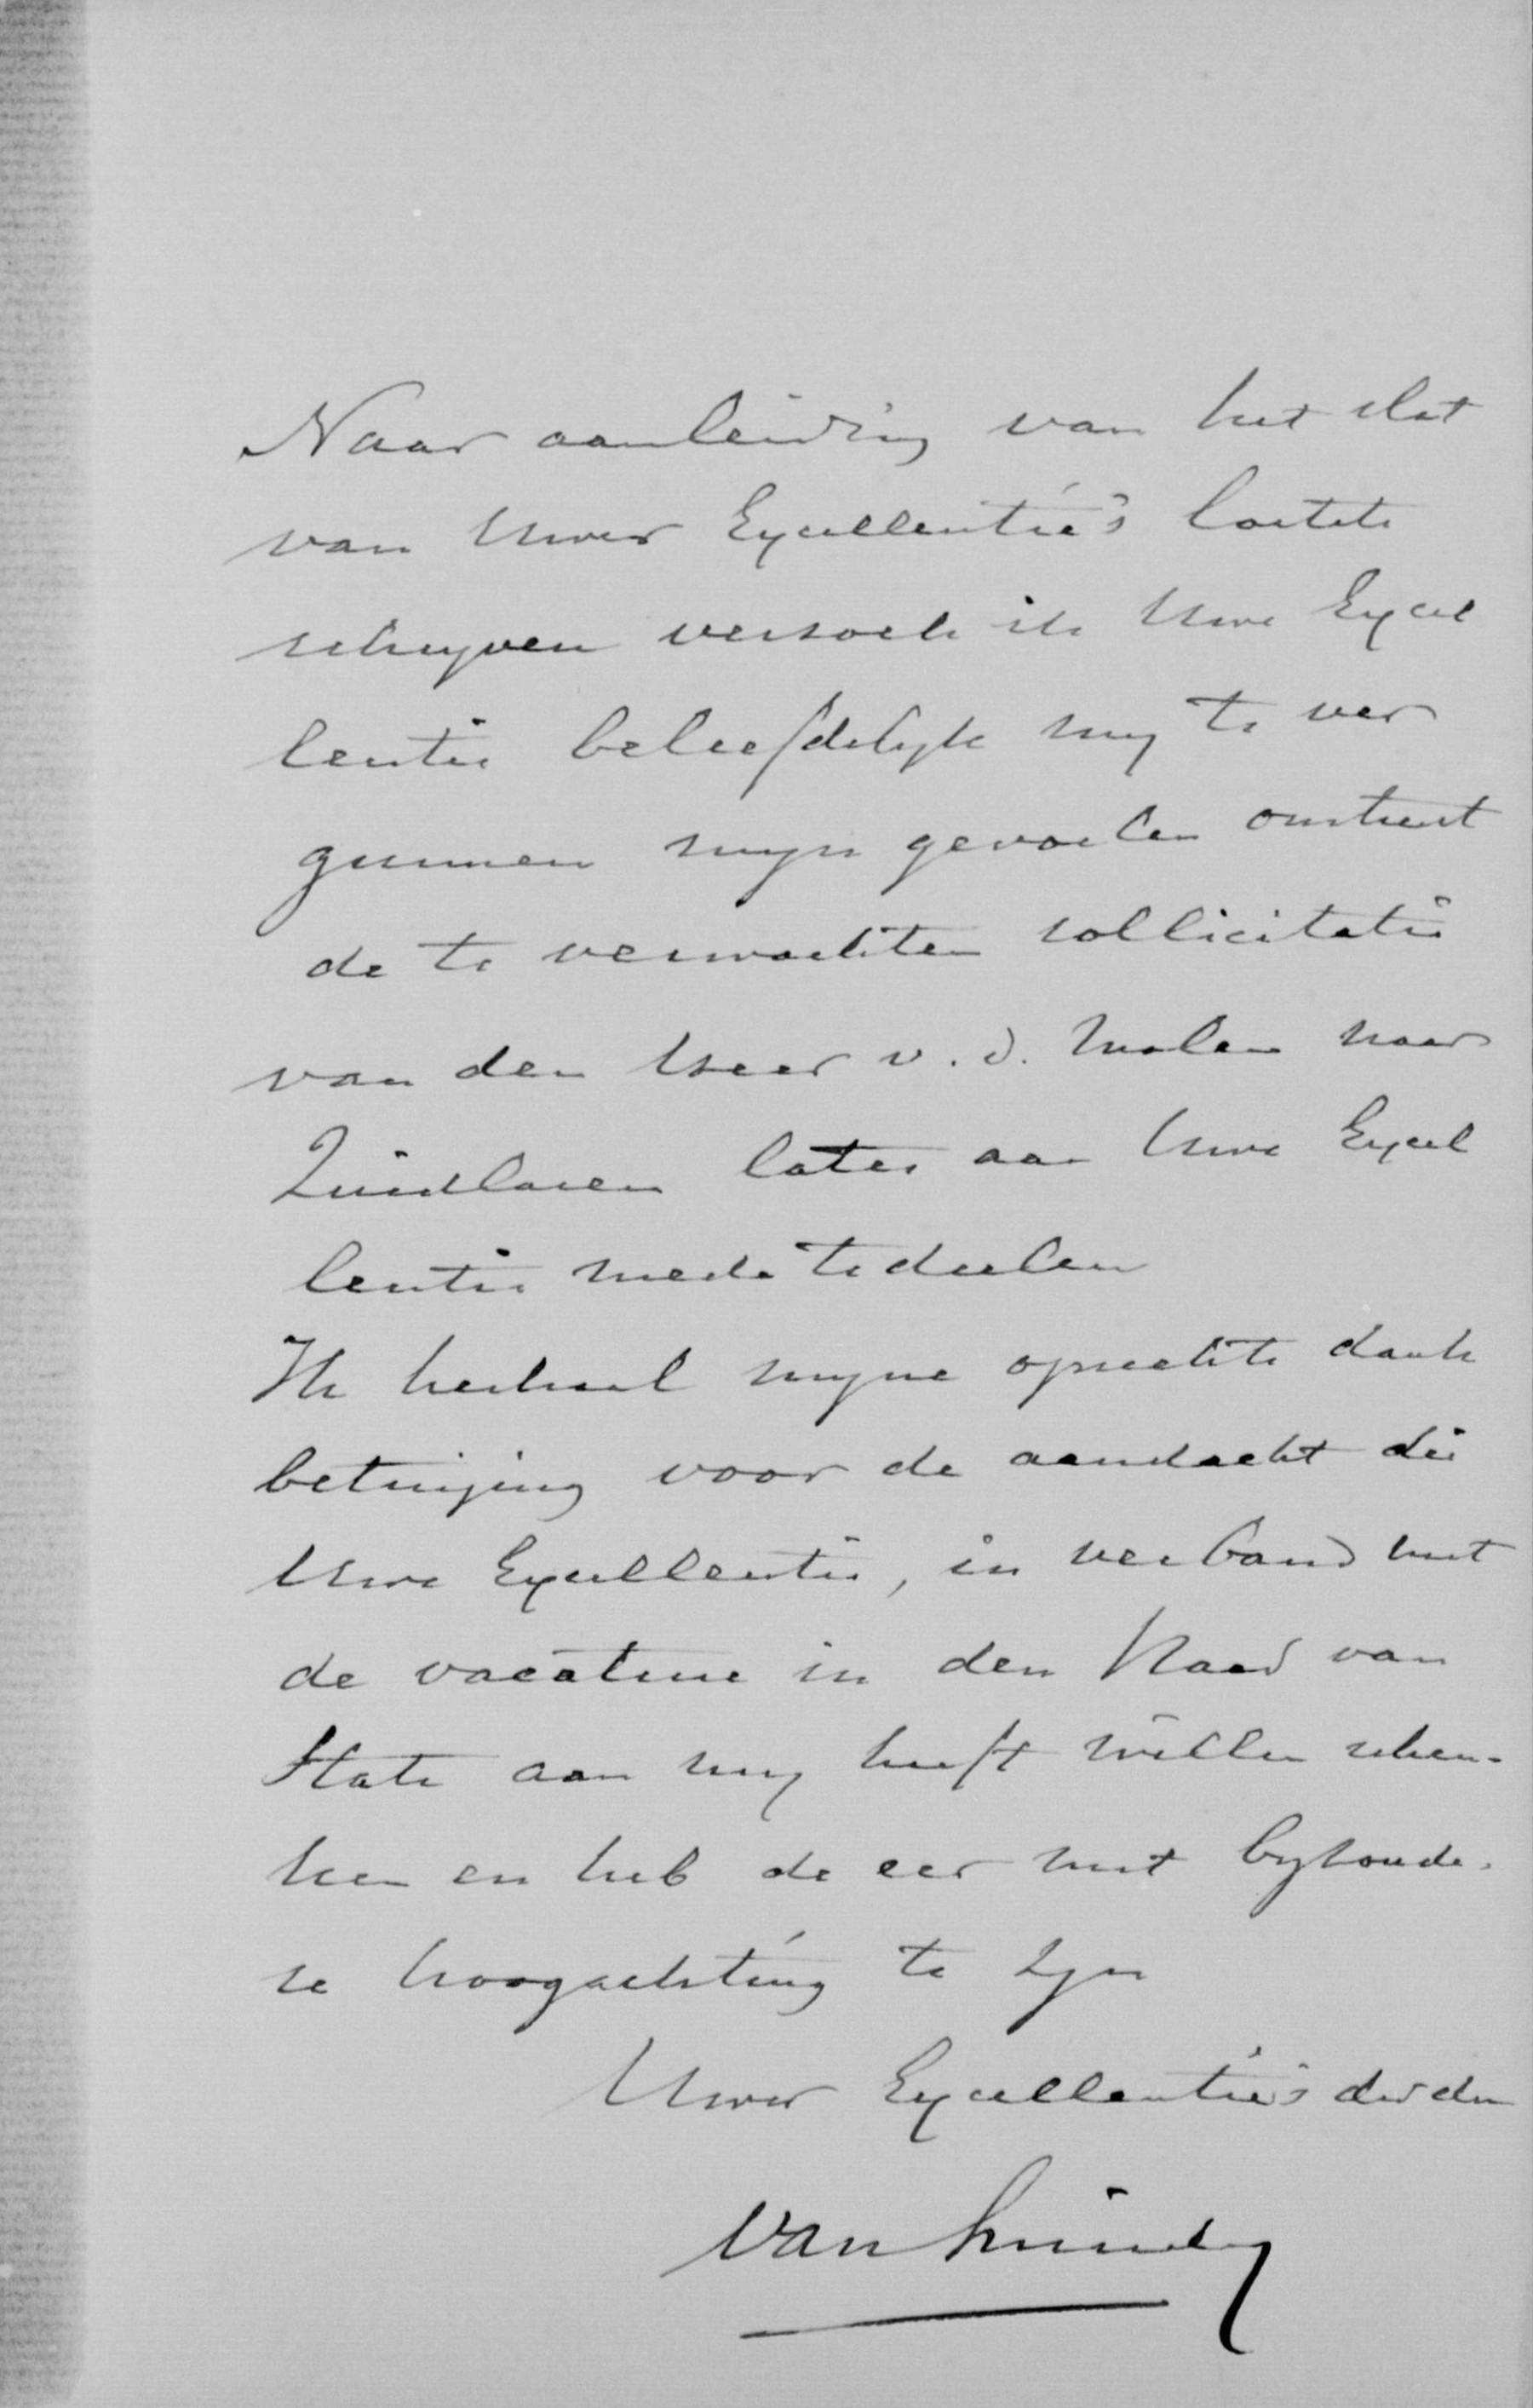 Naar aanleiding van het slot
van Uwer Excellentie's laatste
schrijven verzoek ik Uwe Excel
lentie beleefdelijk mij te ver
gunnen mijn gevoelen omtrent
de te verwachten sollicitatie
van den heer v. d. Molen naar
Zuidlaren later aan Uwe Excel
lentie mede te deelen
Ik herhaal mijne oprechte dank
betuiging voor de aandacht die
Uwe Excellentie, in verband met
de vacature in den Raad van
State aan mij heeft willen schen-
ken en heb de eer met bijzonde-
re hoogachting te zijn
Uwer Excellentie's dwdn
van